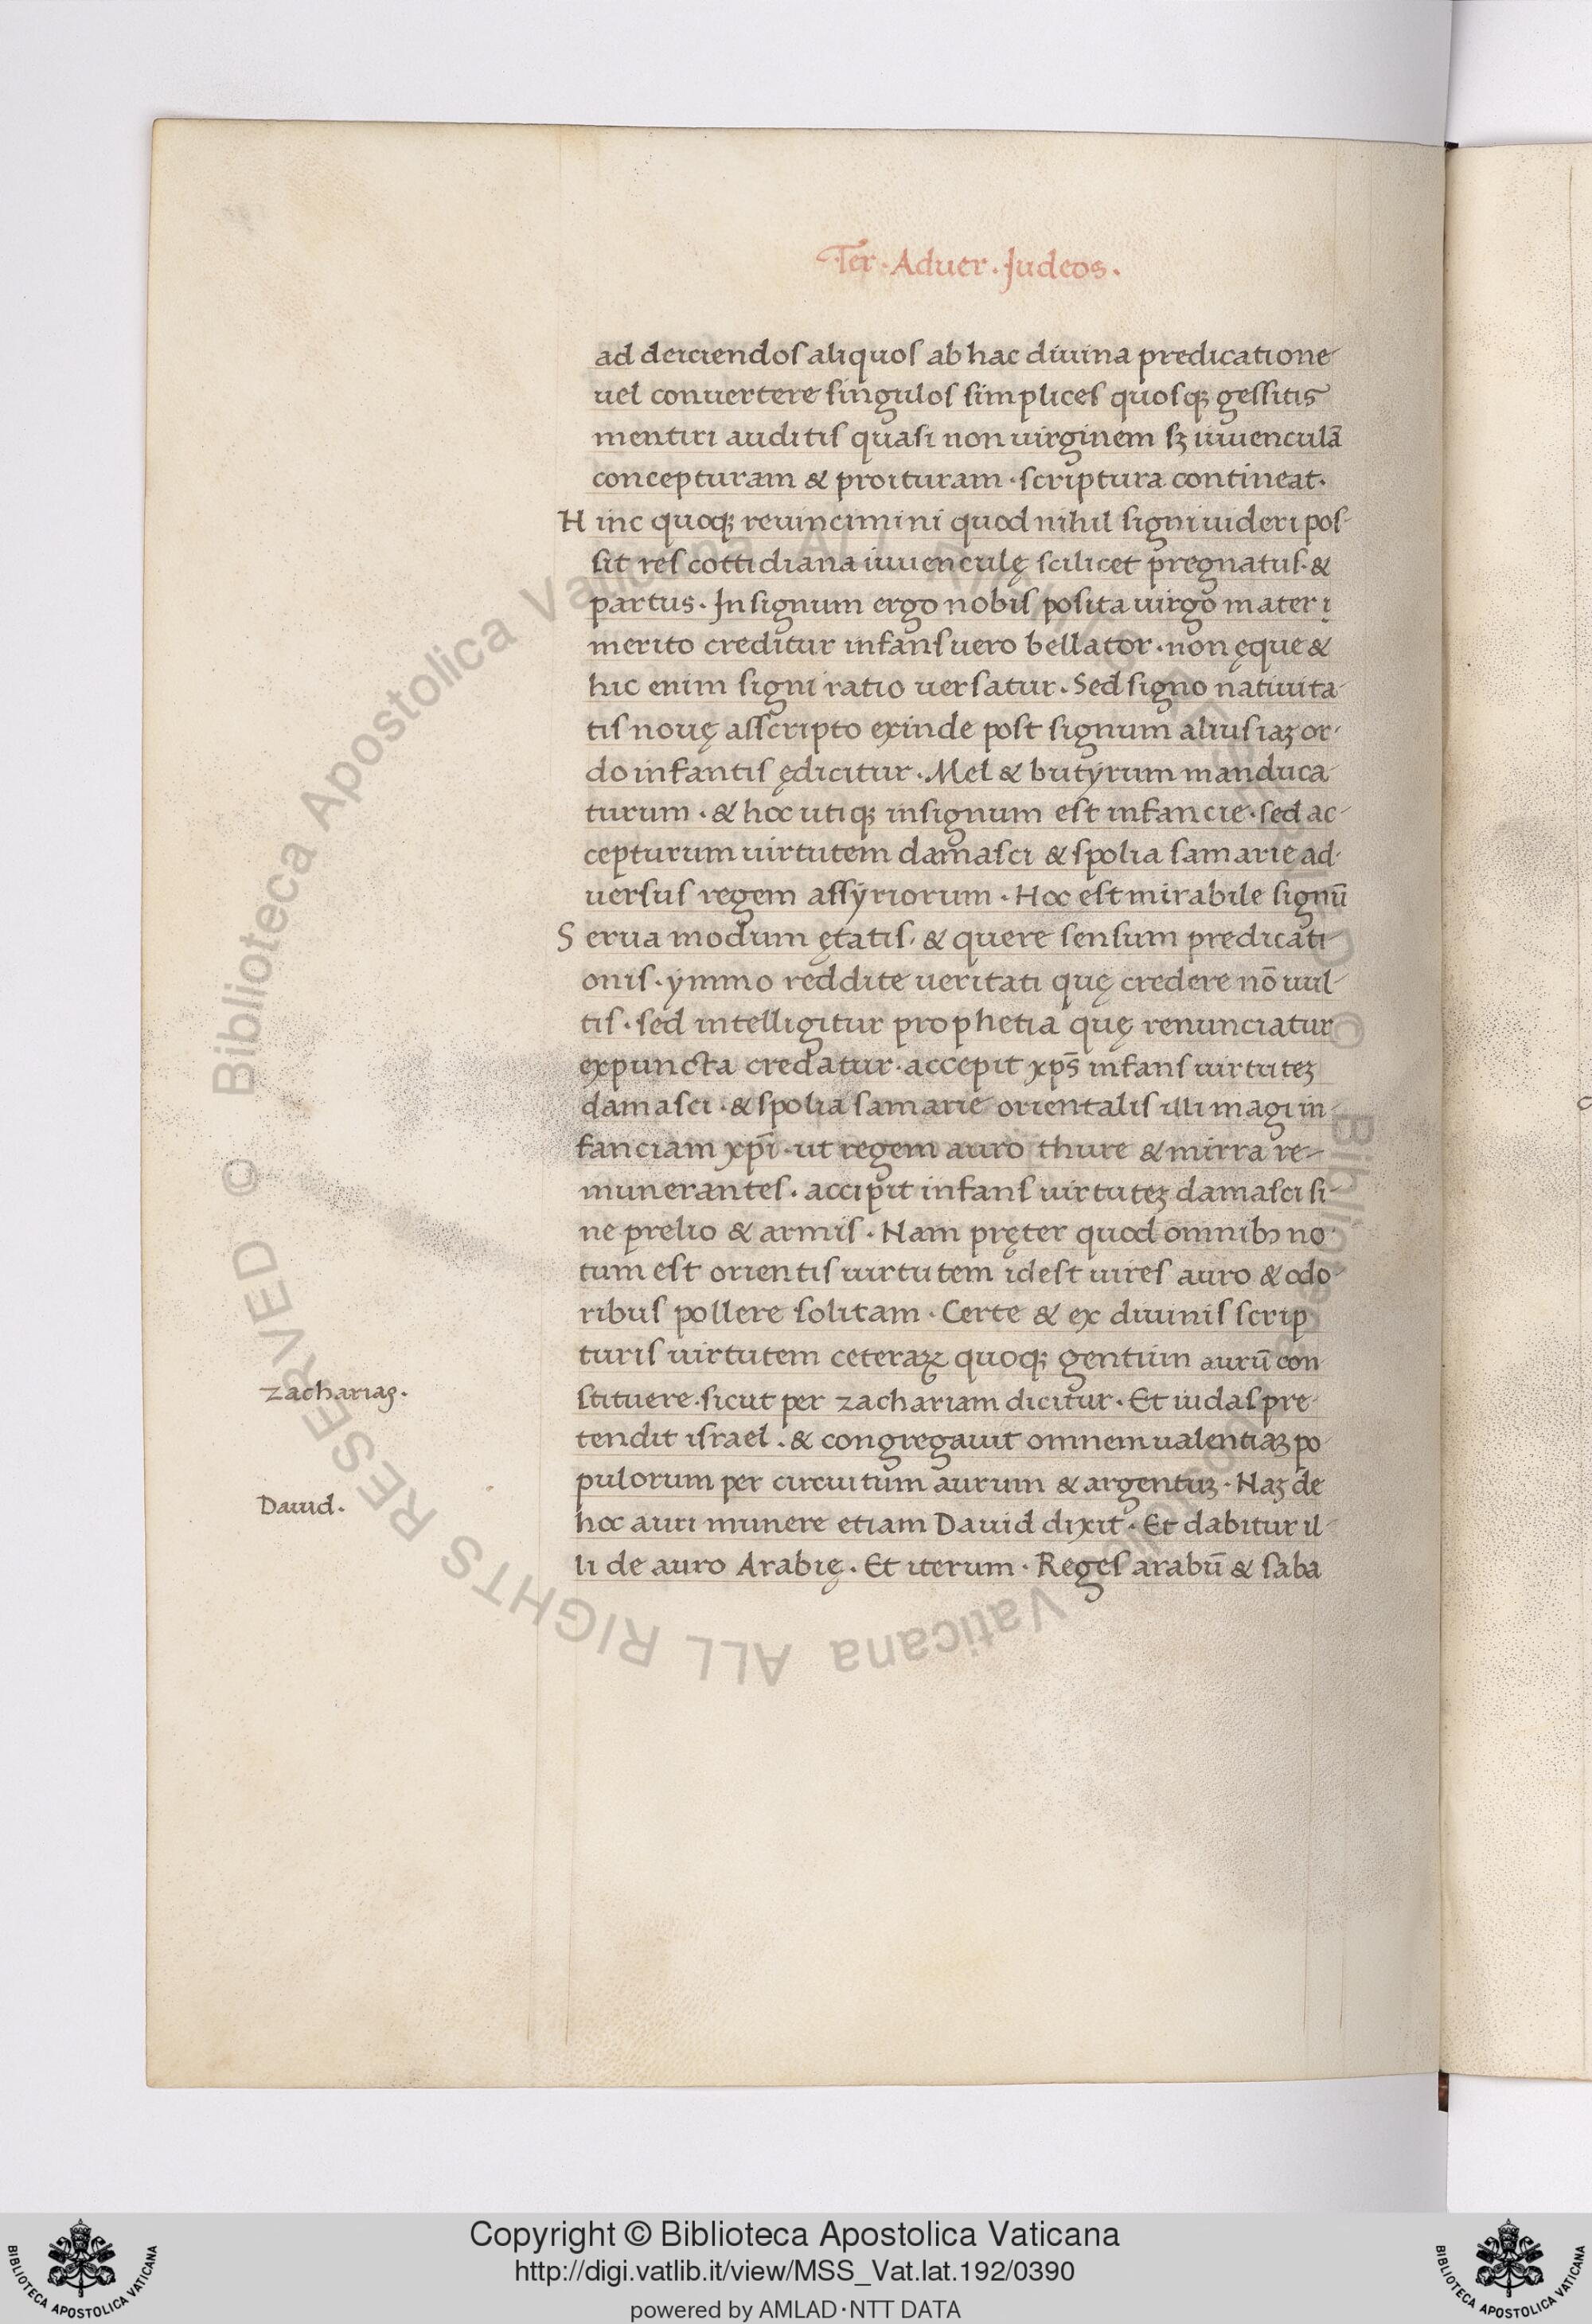 Ter · Aduer · Judeos ·
ad deiciendos aliquos ab hac diuina predicatione
uel conuertere singulos simplices quosqꝫ gessitis
mentiri auditis quasi non uirginem sꝫ iuuenculā
concepturam & proituram · scriptura contineat ·
Hinc quoqꝫ reuincimini quod nihil signi uideri pos-
sit res cottidiana iuuenculę scilicet pregnatus · &
partus · In signum ergo nobis posita uirgo mater ị
merito creditur infans uero bellator · non ęque &
hic enim signi ratio uersatur · Sed signo natiuita-
tis nouę asscripto exinde post signum alius iaꝫ or-
do infantis ędicitur · Mel & butyrum manduca-
turum · & hoc utiqꝫ insignum est infancie · sed ac-
cepturum uirtutem damasci & spolia samarie ad-
uersus regem assyriorum · Hoc est mirabile signū
Serua modum ętatis · & quere sensum predicati-
onis · ymmo reddite ueritati quę credere nō uul-
tis · sed intelligitur prophetia quę renunciatur
expuncta credatur · accepit xp̄s infans uirtuteꝫ
damasci · & spolia samarie orientalis illi magi in-
fanciam xp̄i · ut regem auro thure & mirra re-
munerantes · accipit infans uirtuteꝫ damasci si-
ne prelio & armis · Nam pręter quod omnibꝫ no-
tum est orientis uirtutem idest uires auro & odo-
ribus pollere solitam · Certe & ex diuinis scrip-
turis uirtutem ceteraꝝ quoqꝫ gentium aurū con
stituere · sicut per zachariam dicitur · Et iudas pre-
tendit israel · & congregauit omnem ualentiaꝫ po-
pulorum per circuitum aurum & argentuꝫ · Naꝫ de
hoc auri munere etiam Dauid dixit · Et dabitur il-
li de auro Arabię · Et iterum · Reges arabū & saba
zacharias ·
Dauid ·
© Biblioteca Apostolica Vaticana ALL RIGHTS RESERVED
© Biblioteca Apostolica Vaticana ALL RIGHTS RESERVED
Copyright © Biblioteca Apostolica Vaticana
http://digi.vatlib.it/view/MSS_Vat.lat.192/0390
powered by AMLAD·NTT DATA
BIBLIOTECA APOSTOLICA VATICANA
BIBLIOTECA APOSTOLICA VATICANA